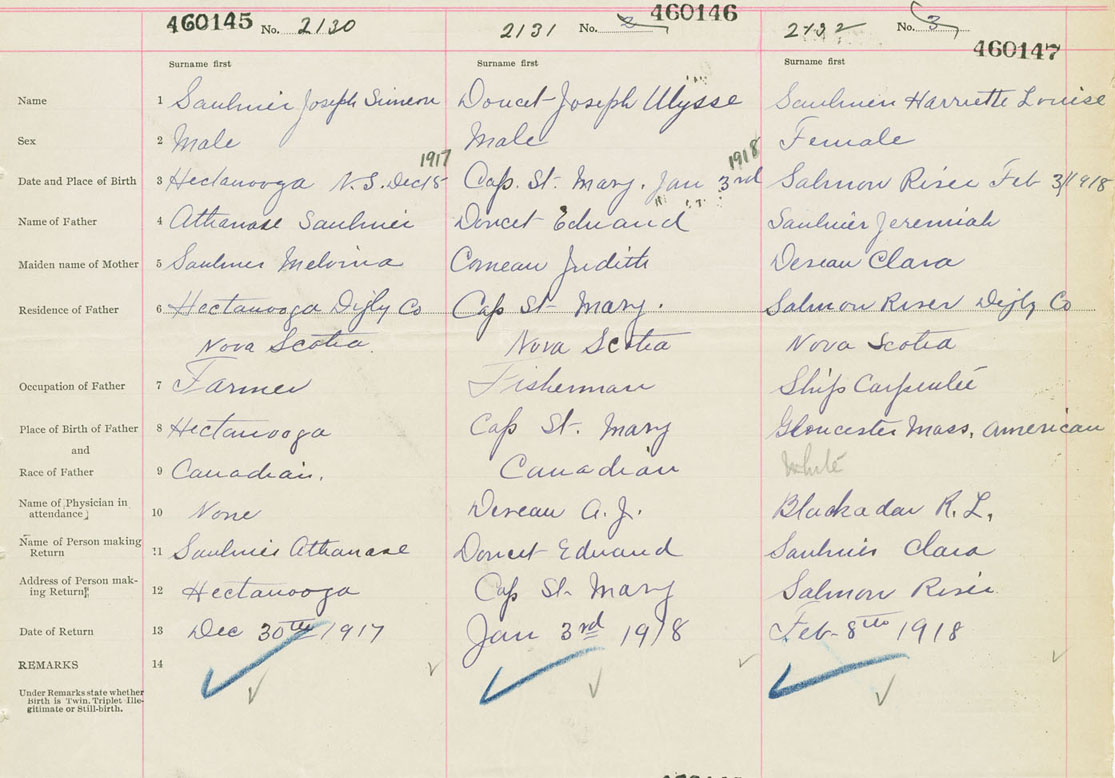 460145 No. 2130 2131 No. 2 460146 2132 No. 3 460147
Surname first Surname first Surname first
Name 1 Saulnier Joseph Simeon Doucet Joseph Ulysse Saulnier Harriette Louise
Sex 2 Male Male Female
1917 1918
Date and Place of Birth 3 Hectanooga N.S. Dec 15 Cap. St. Mary. Jan 3rd Salmon River Feb 3/1918
Name of Father 4 Athanase Saulnier Doucet Edward Saulnier Jeremiah
Maiden name of Mother 5 Saulnier Melvina Comeau Judith Deveau Clara
Residence of Father 6 Hectanooga Digby Co Cap St Mary. Salmon River Digby Co
Nova Scotia Nova Scotia Nova Scotia
Occupation of Father 7 Farmer Fisherman Ship Carpenter
Place of Birth of Father 8 Hectanooga Cap St. Mary Gloucester Mass, American
and
Race of Father 9 Canadian. Canadian White
Name of Physician in
attendance 10 None Deveau A.J. Blackadar R.L.
Name of Person making
Return 11 Saulnier Athanase Doucet Edward Saulnier Clara
Address of Person mak-
ing Return 12 Hectanooga Cap St. Mary Salmon River
Date of Return 13 Dec 30th 1917 Jan 3rd 1918 Feb 8th 1918
REMARKS 14
Under Remarks state whether
Birth is Twin, Triplet Ille-
gitimate or Still-birth.